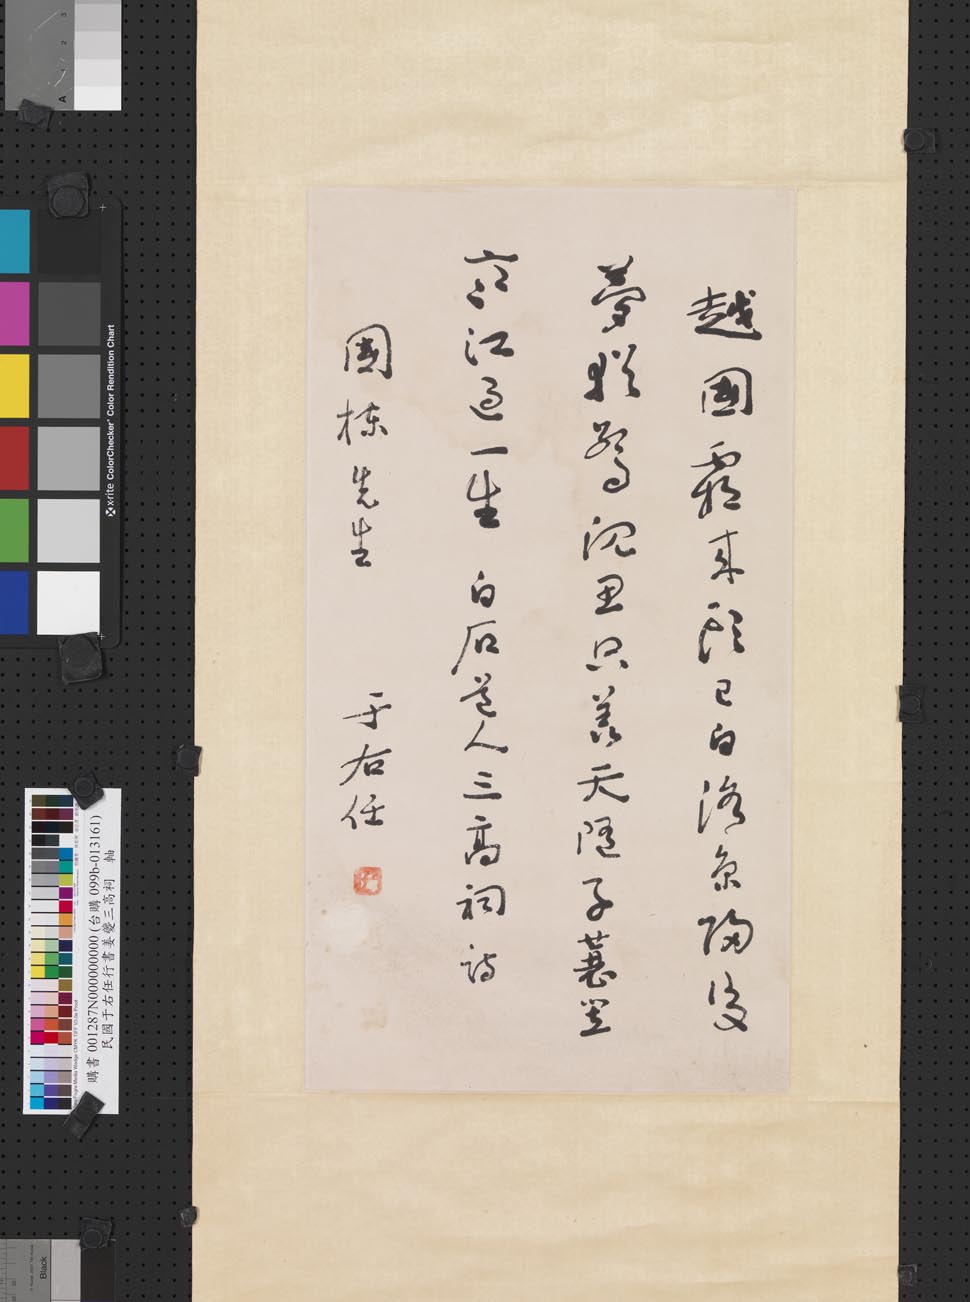 越國霸來頭已白洛京歸後
夢猶驚沈思只羨天隨子蓑笠
寒江過一生 白石道人三高祠詩
國棟先生 于右任
x-rite ColorChecker Color Rendition Chart
購書 001287N000000000 (台購 099b-013161)
民國于右任行書姜夔三高祠 軸
A 1 2 3
Black